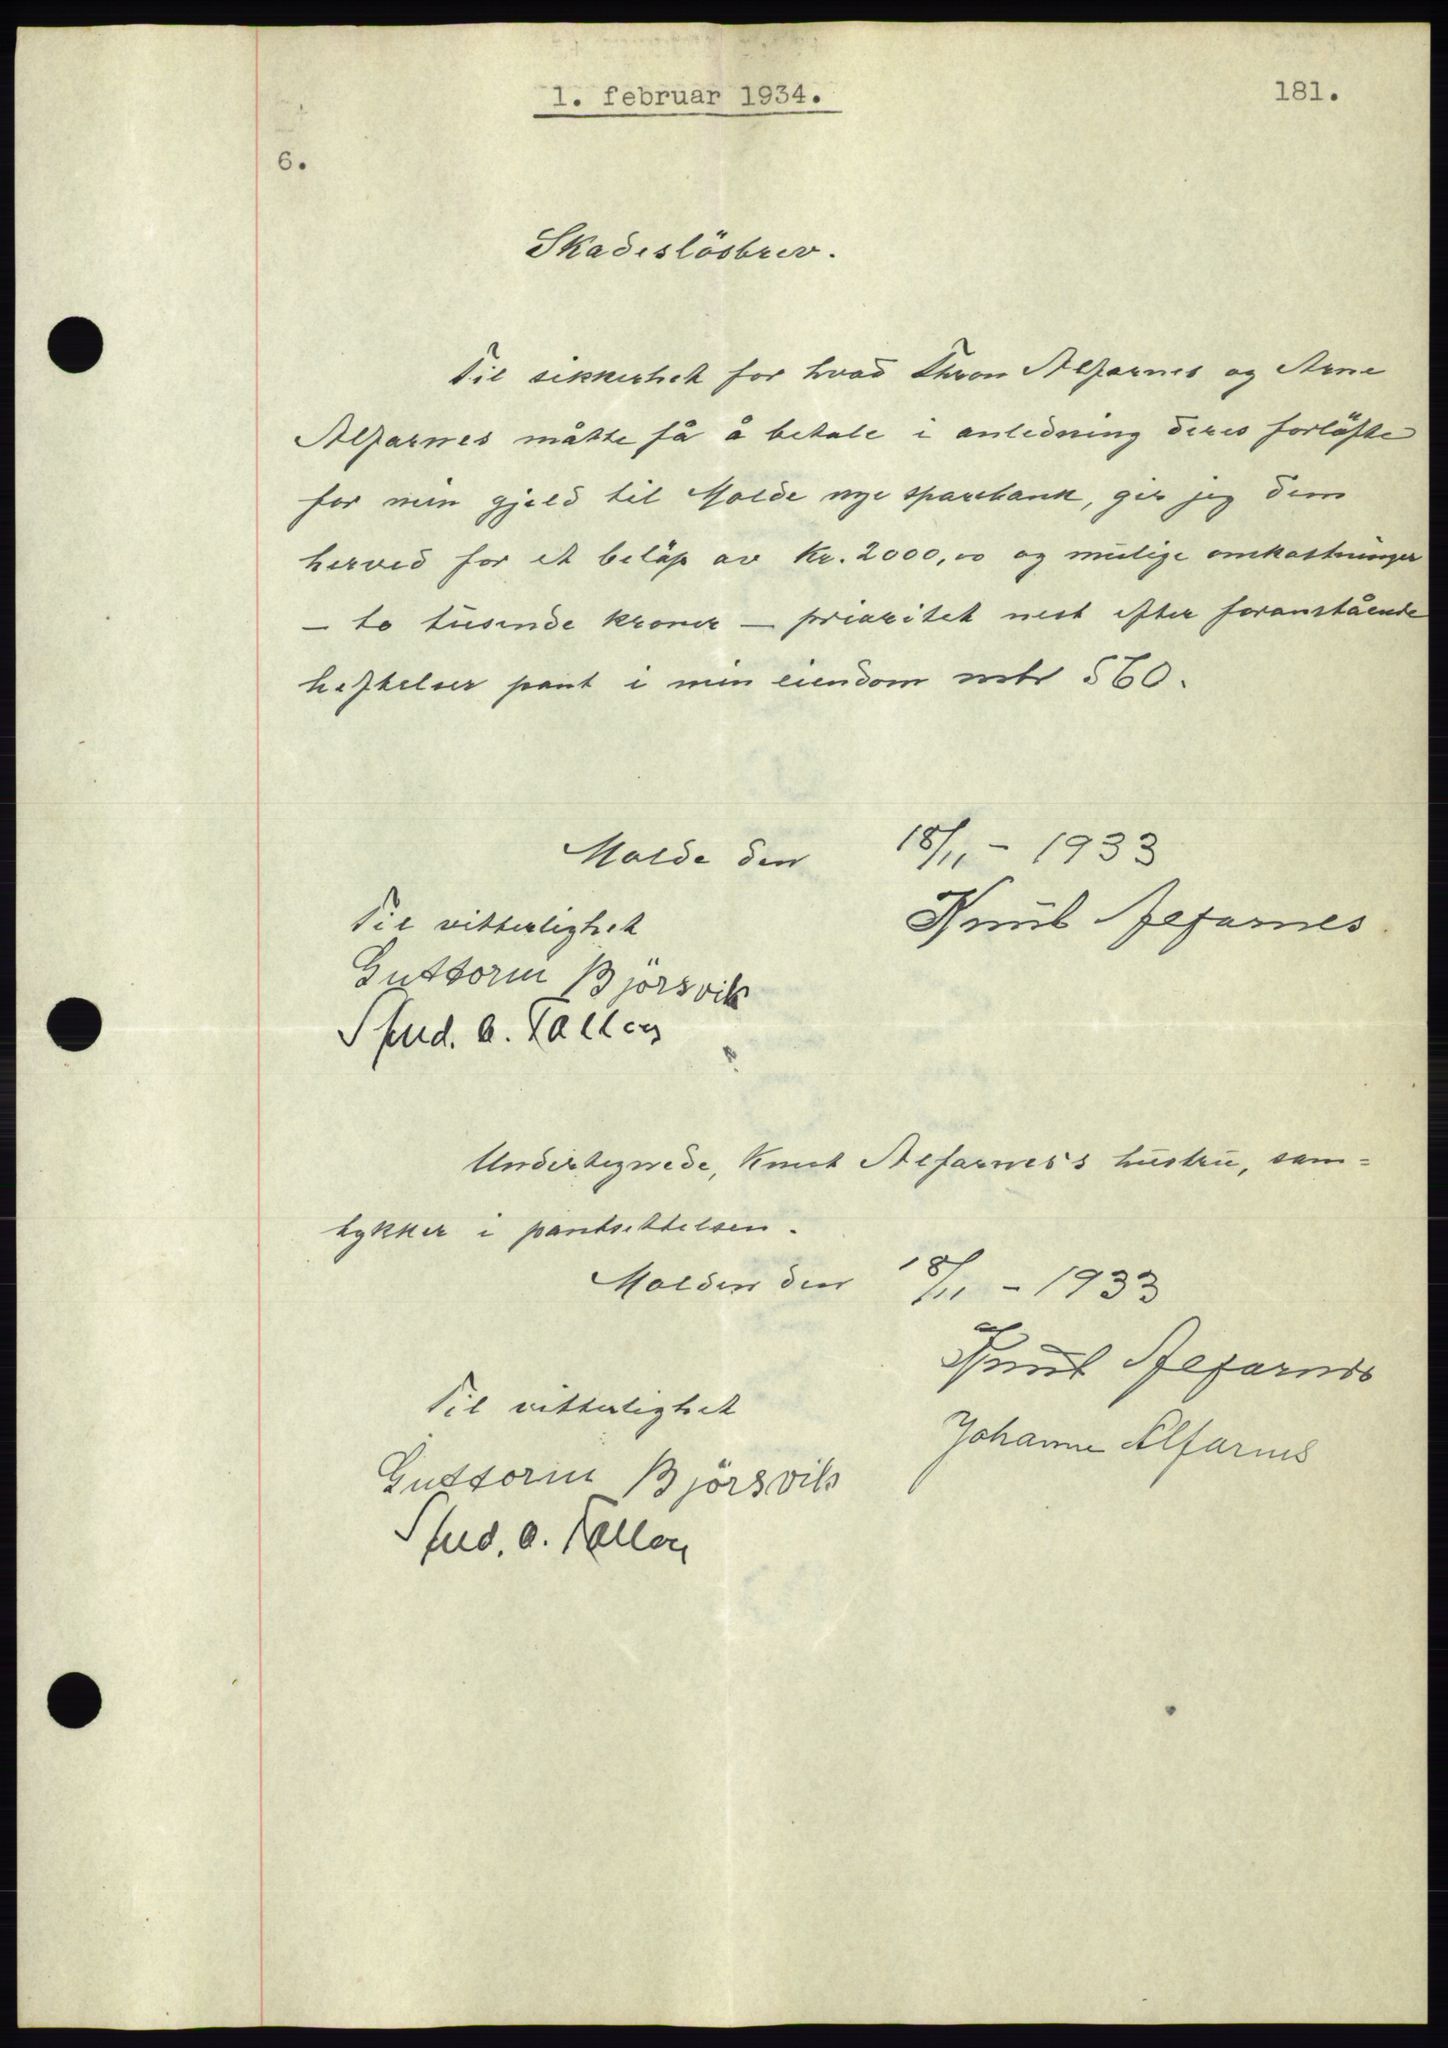 1. februar 1934.
181.
6.
Skadeslösbrev.
Til sikkerhet for hvad Thron Alfarnes og Arne
Alfarnes måtte få å betale i anledning deres forlöfte
for min gjeld til Molde nye sparebank, gir jeg dem
herved for et belöp av kr. 2000,00 og mulige omkostninger
— to tusende kroner — prioritet nest efter foranstående
heftelser pant i min eiendom mtr 560.
Molde den 18/11 - 1933
Til vitterlighet
Knut Alfarnes
Guttorm Björsvik
O.
Undertegnede, Knut Alfarnes's hustru, sam=
tykker i pantsettelsen.
Molden den 18/11 - 1933
Knut Alfarnes
Til vitterlighet
Johanne Alfarnes
Guttorm Björsvik
O.